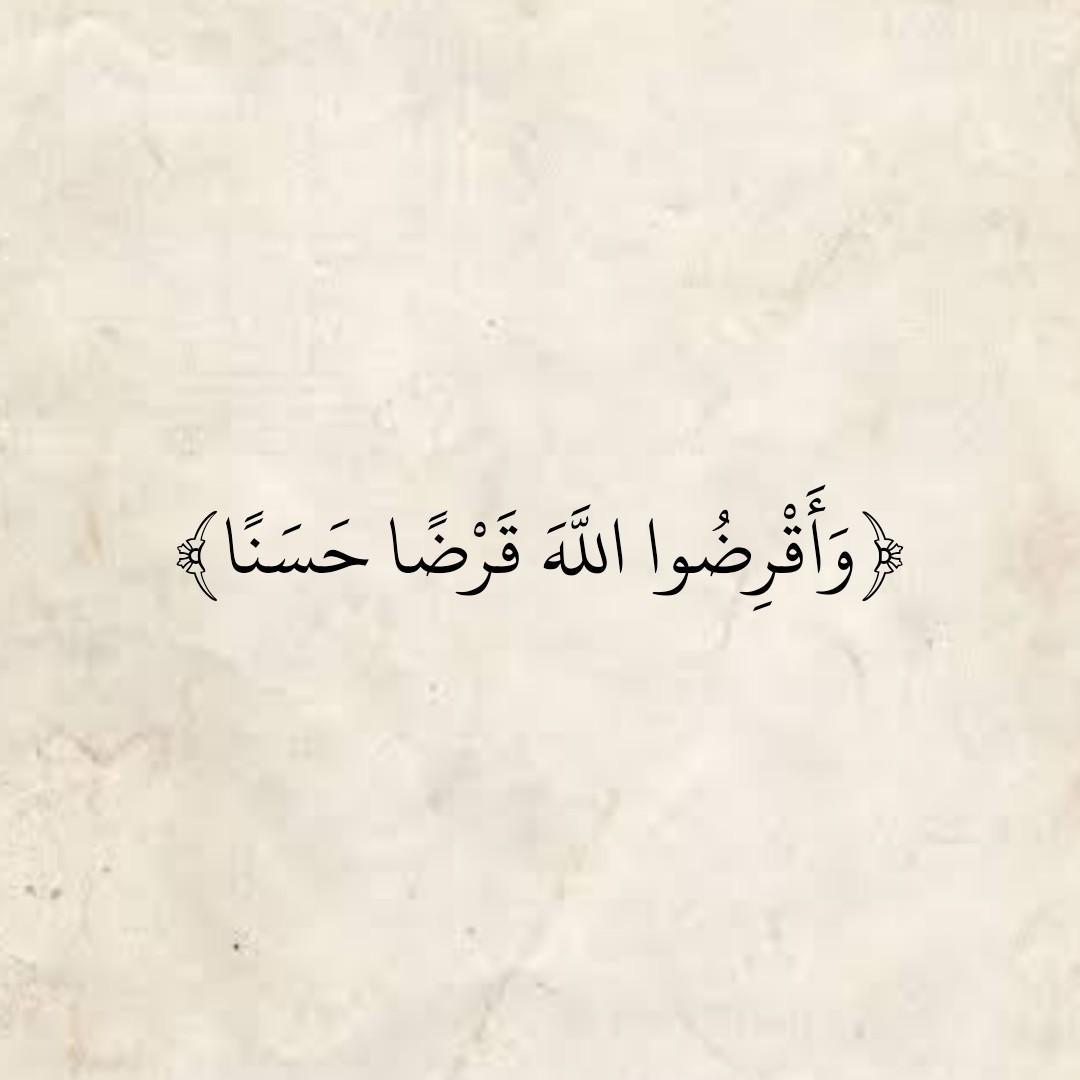 ﴿وَأَقْرِضُوا اللَّهَ قَرْضًا حَسَنًا﴾